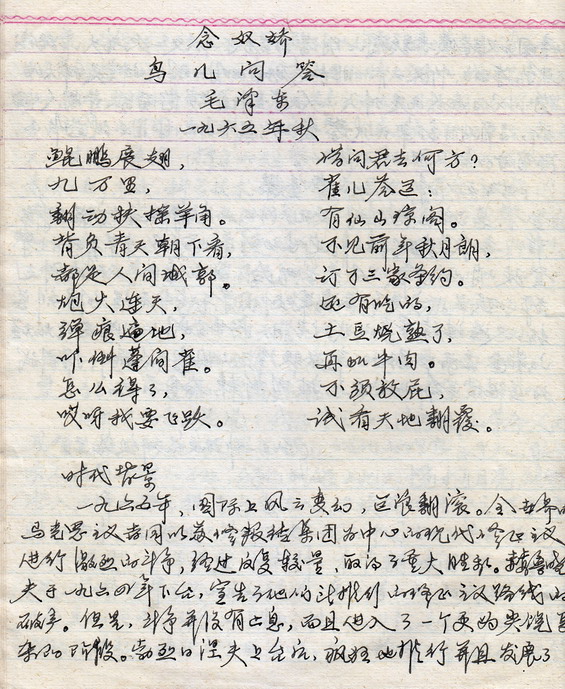 念奴娇
鸟儿问答
毛泽东
一九六五年秋
鲲鹏展翅，
九万里，
翻动扶摇羊角。
背负青天朝下看，
都是人间城郭。
炮火连天，
弹痕遍地，
吓倒蓬间雀。
怎么得了，
哎呀我要飞跃。
借问君去何方？
雀儿答道：
有仙山琼阁。
不见前年秋月朗，
订了三家条约。
还有吃的，
土豆烧熟了，
再加牛肉。
不须放屁，
试看天地翻覆。
时代背景
一九六五年，国际上风云变幻，巨浪翻滚。全世界的
马克思主义者同以苏修叛徒集团为中心的现代修正主义
进行激烈的斗争，经过反复较量，取得了重大胜利。赫鲁晓
夫于一九六四年下台，宣告了他们所推行的修正主义路线的
破产。但是，斗争并没有止息，而且进入了一个更为尖锐复
杂的阶段。勃列日涅夫上台后，疯狂地推行并且发展了